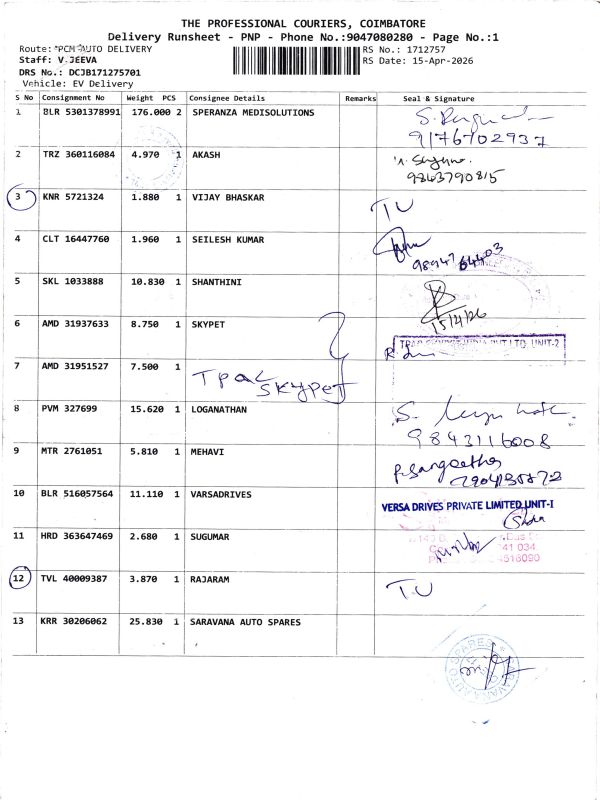 THE PROFESSIONAL COURIERS, COIMBATORE
Delivery Runsheet - PNP - Phone No.:9047080280 - Page No.:1
Route: PCM AUTO DELIVERY
RS No.: 1712757
Staff: V.JEEVA
RS Date: 15-Apr-2026
DRS No.: DCJB171275701
Vehicle: EV Delivery
S No Consignment No Weight PCS Consignee Details Remarks Seal & Signature
1 BLR 5301378991 176.000 2 SPERANZA MEDISOLUTIONS
9176702937
2 TRZ 360116084 4.970 1 AKASH
9843790815
3 KNR 5721324 1.880 1 VIJAY BHASKAR TU
4 CLT 16447760 1.960 1 SEILESH KUMAR
9894764403
5 SKL 1033888 10.830 1 SHANTHINI
15/4/26
6 AMD 31937633 8.750 1 SKYPET
UNIT-2
7 AMD 31951527 7.500 1 Tpac
SKYPET
8 PVM 327699 15.620 1 LOGANATHAN
9843116008
9 MTR 2761051 5.810 1 MEHAVI
P.Sangeetha
10 BLR 516057564 11.110 1 VARSADRIVES
VERSA DRIVES PRIVATE LIMITED,UNIT-I
11 HRD 363647469 2.680 1 SUGUMAR
12 TVL 40009387 3.870 1 RAJARAM T.U
13 KRR 30206062 25.830 1 SARAVANA AUTO SPARES
SARAVANA AUTO SPARES